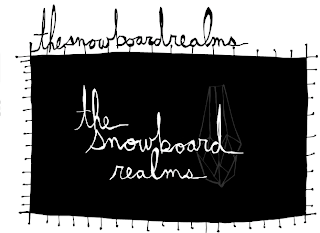 thesnowboardrealms
the
snowboard
realms